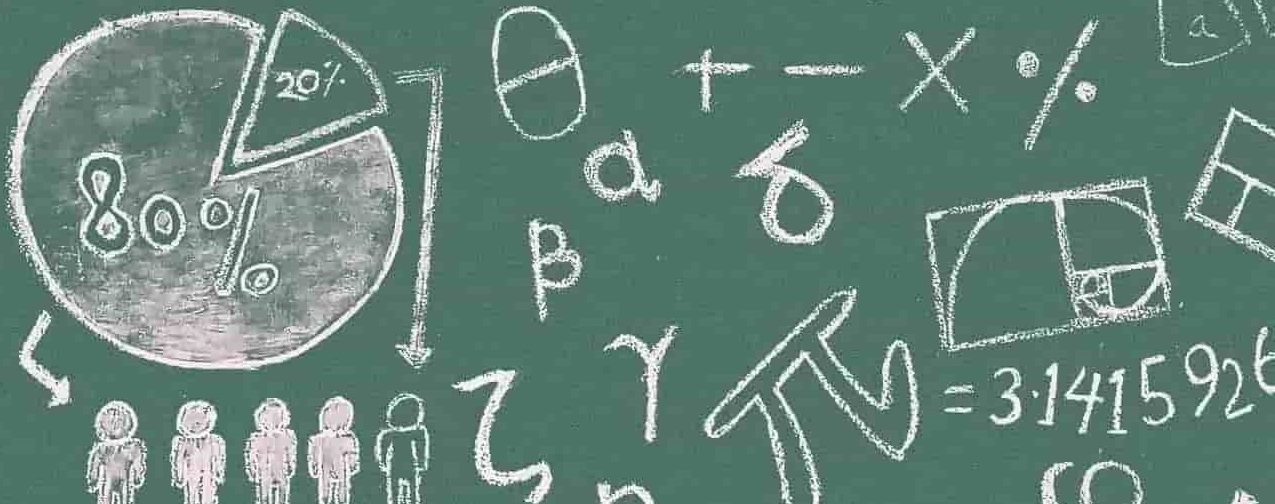 20%
80%
θ + − × %
a
α δ
β
γ
ζ
π = 3.1415926